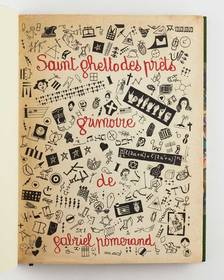 Saint ghetto des prêts
grimoire
de
gabriel pomerand